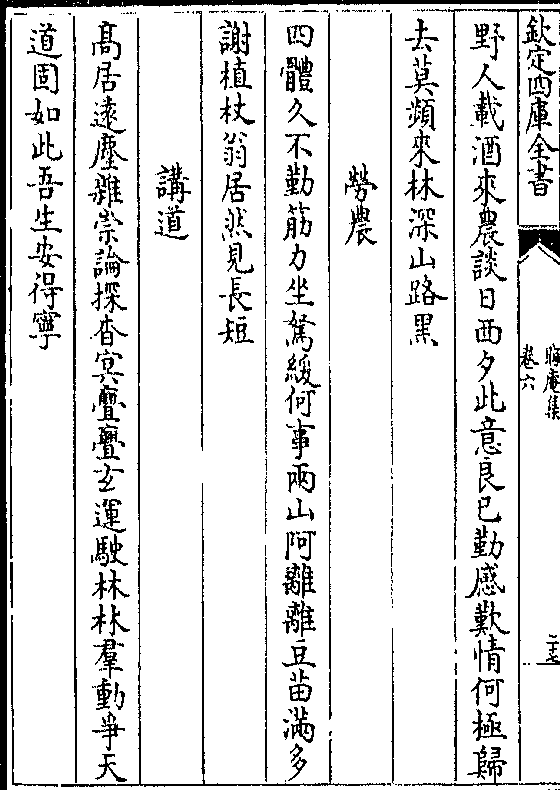 欽定四庫全書
晦庵集
卷六
二十七
野人載酒來農談日西夕此意良已勤感歎情何極歸
去莫頻來林深山路黒
勞農
四體久不勤筋力坐駑緩何事兩山阿離離豆苗滿多
謝植杖翁居然見長短
講道
髙居遠塵雜崇論探杳冥亹亹玄運駛林林羣動爭天
道固如此吾生安得寧